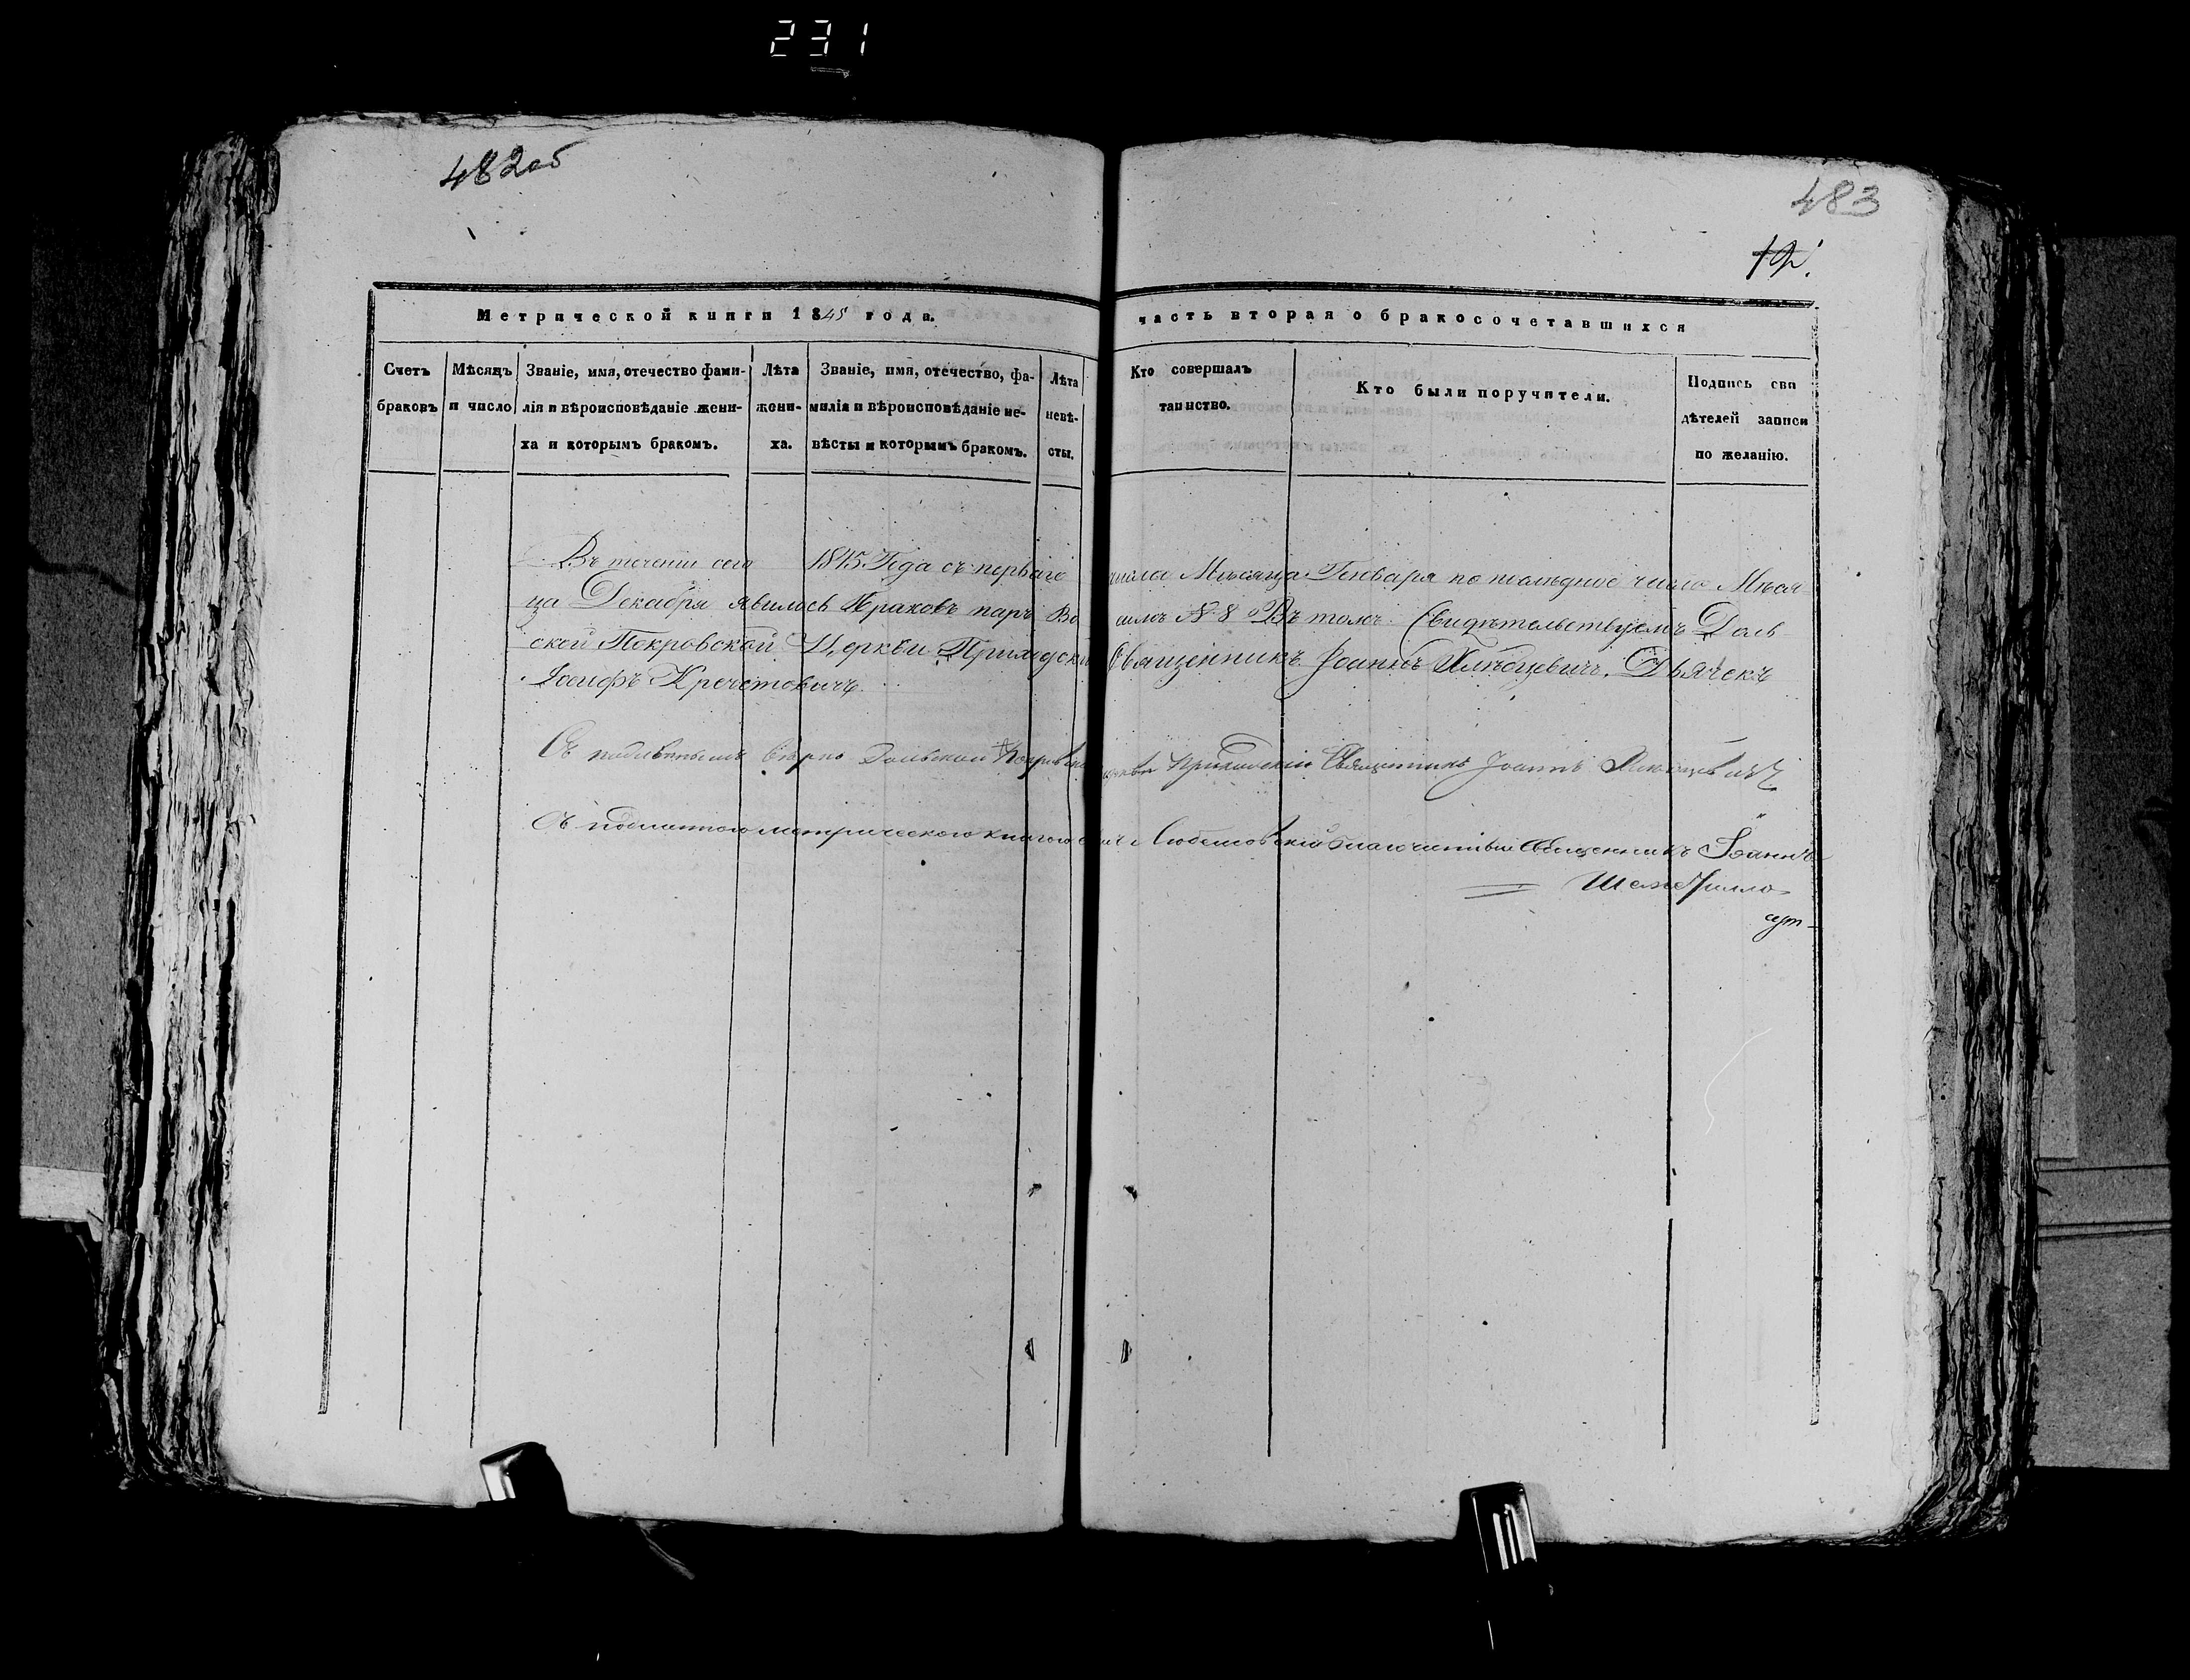 231
482об
483
12.
Метрической книги 1845 года.
часть вторая о бракосочетавшихся
Счетъ браковъ
Мѣсяцъ и число
Званіе, имя, отечество фами-
лія и вѣроисповѣданіе жени-
ха и которымъ бракомъ.
Лѣта
жени-
ха.
Званіе, имя, отечество, фа-
милія и вѣроисповѣданіе не-
вѣсты и которымъ бракомъ.
Лѣта
невѣ-
сты.
Кто совершалъ
таинство.
Кто были поручители.
Подпись сви
дѣтелей записи
по желанію.
Въ течении сего 1845 Года съ перваго числа Мѣсяца Генваря по последное число Мѣся
ца Декабря явилось Браковъ паръ Во симъ № 8 Въ томъ Свидѣтельствуемъ Доль
ской Покровской Церкви Приходски Священникъ Іоаннъ Хлѣбцевичъ. Дьячекъ
Іосифъ Кречетовичъ.
Съ подлиннымъ вѣрно Дольской Покровской церкви Приходскій Священникъ Іоаннъ Хлебцевичъ
Съ подлинною метрическою книгою Любешовскій благочинный Священникъ Іоаннъ